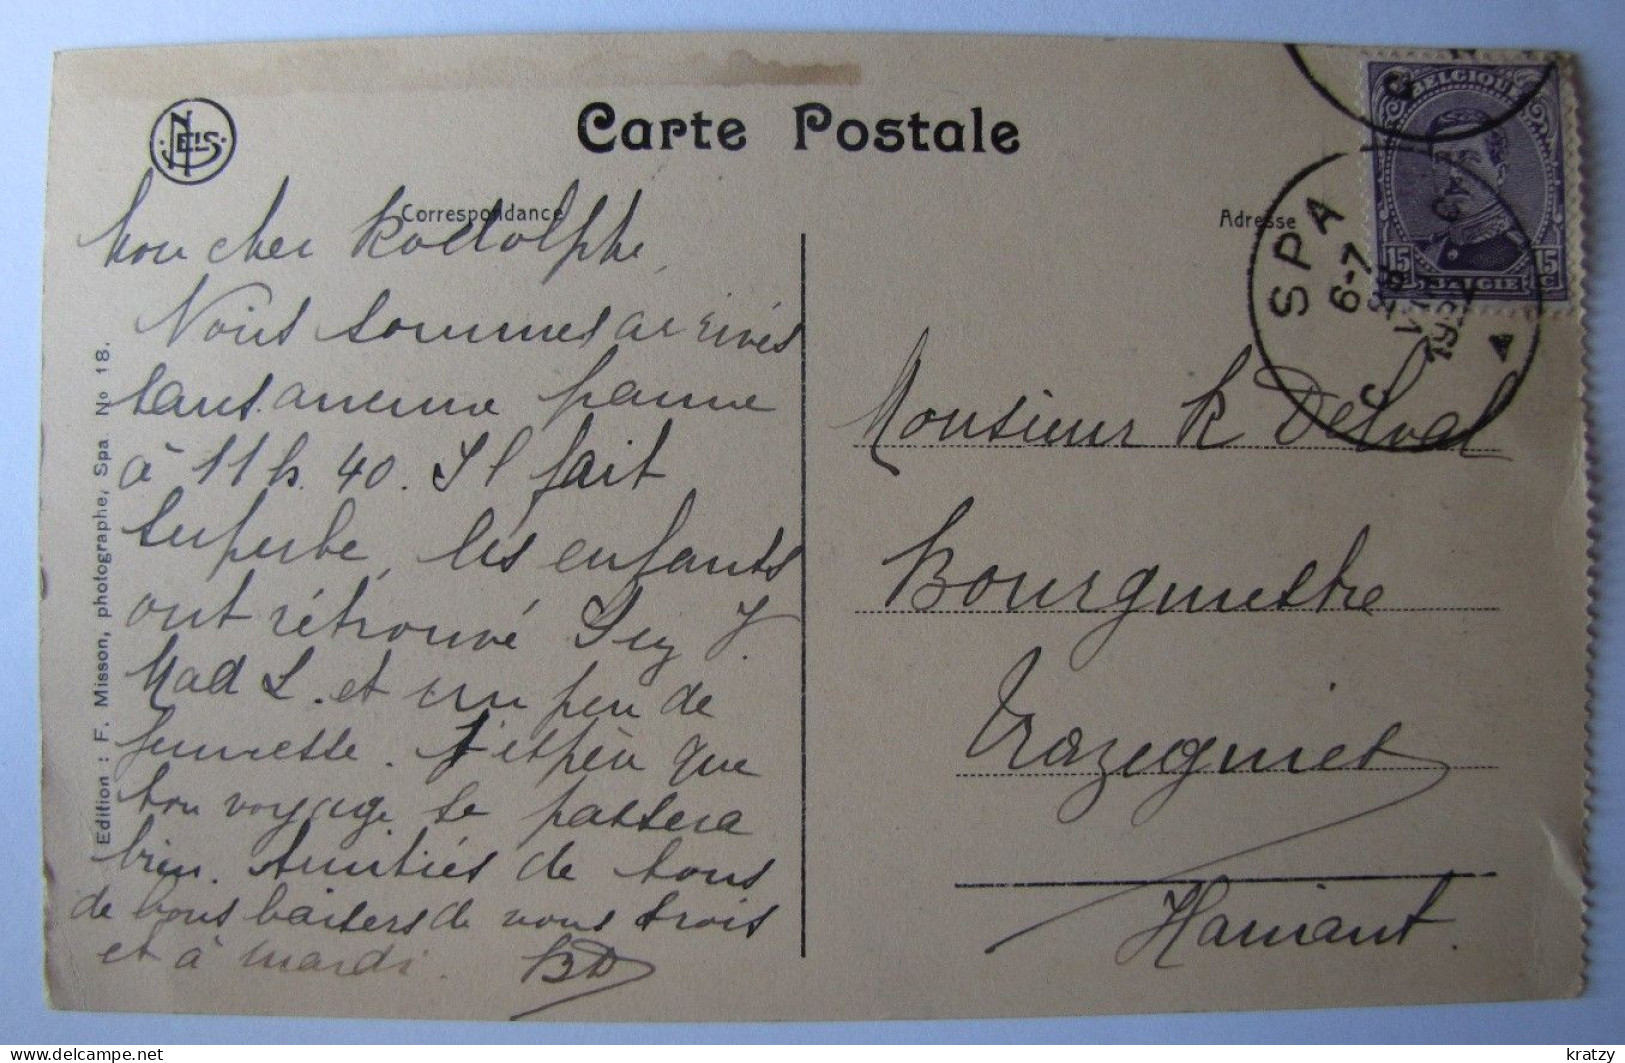 NELS
Carte Postale
Correspondance
Adresse
BELGIQUE
15 15 C
BELGIE
SPA
6-7
Mon cher Rodolphe,
Nous sommes arrivés
sans aucune panne
à 11 h. 40. Il fait
superbe, les enfants
ont rétrouvé Suzy J.
Mad L. et un peu de
jeunesse. J'espère que
ton voyage se passera
bien. Amitiés de tous
de bons baisers de nous trois
et à mardi. BD
Monsieur R Delval
Bourgmestre
Trazegnies
Hainaut.
Edition : F. Misson, photographe, Spa No 18.
kratzy